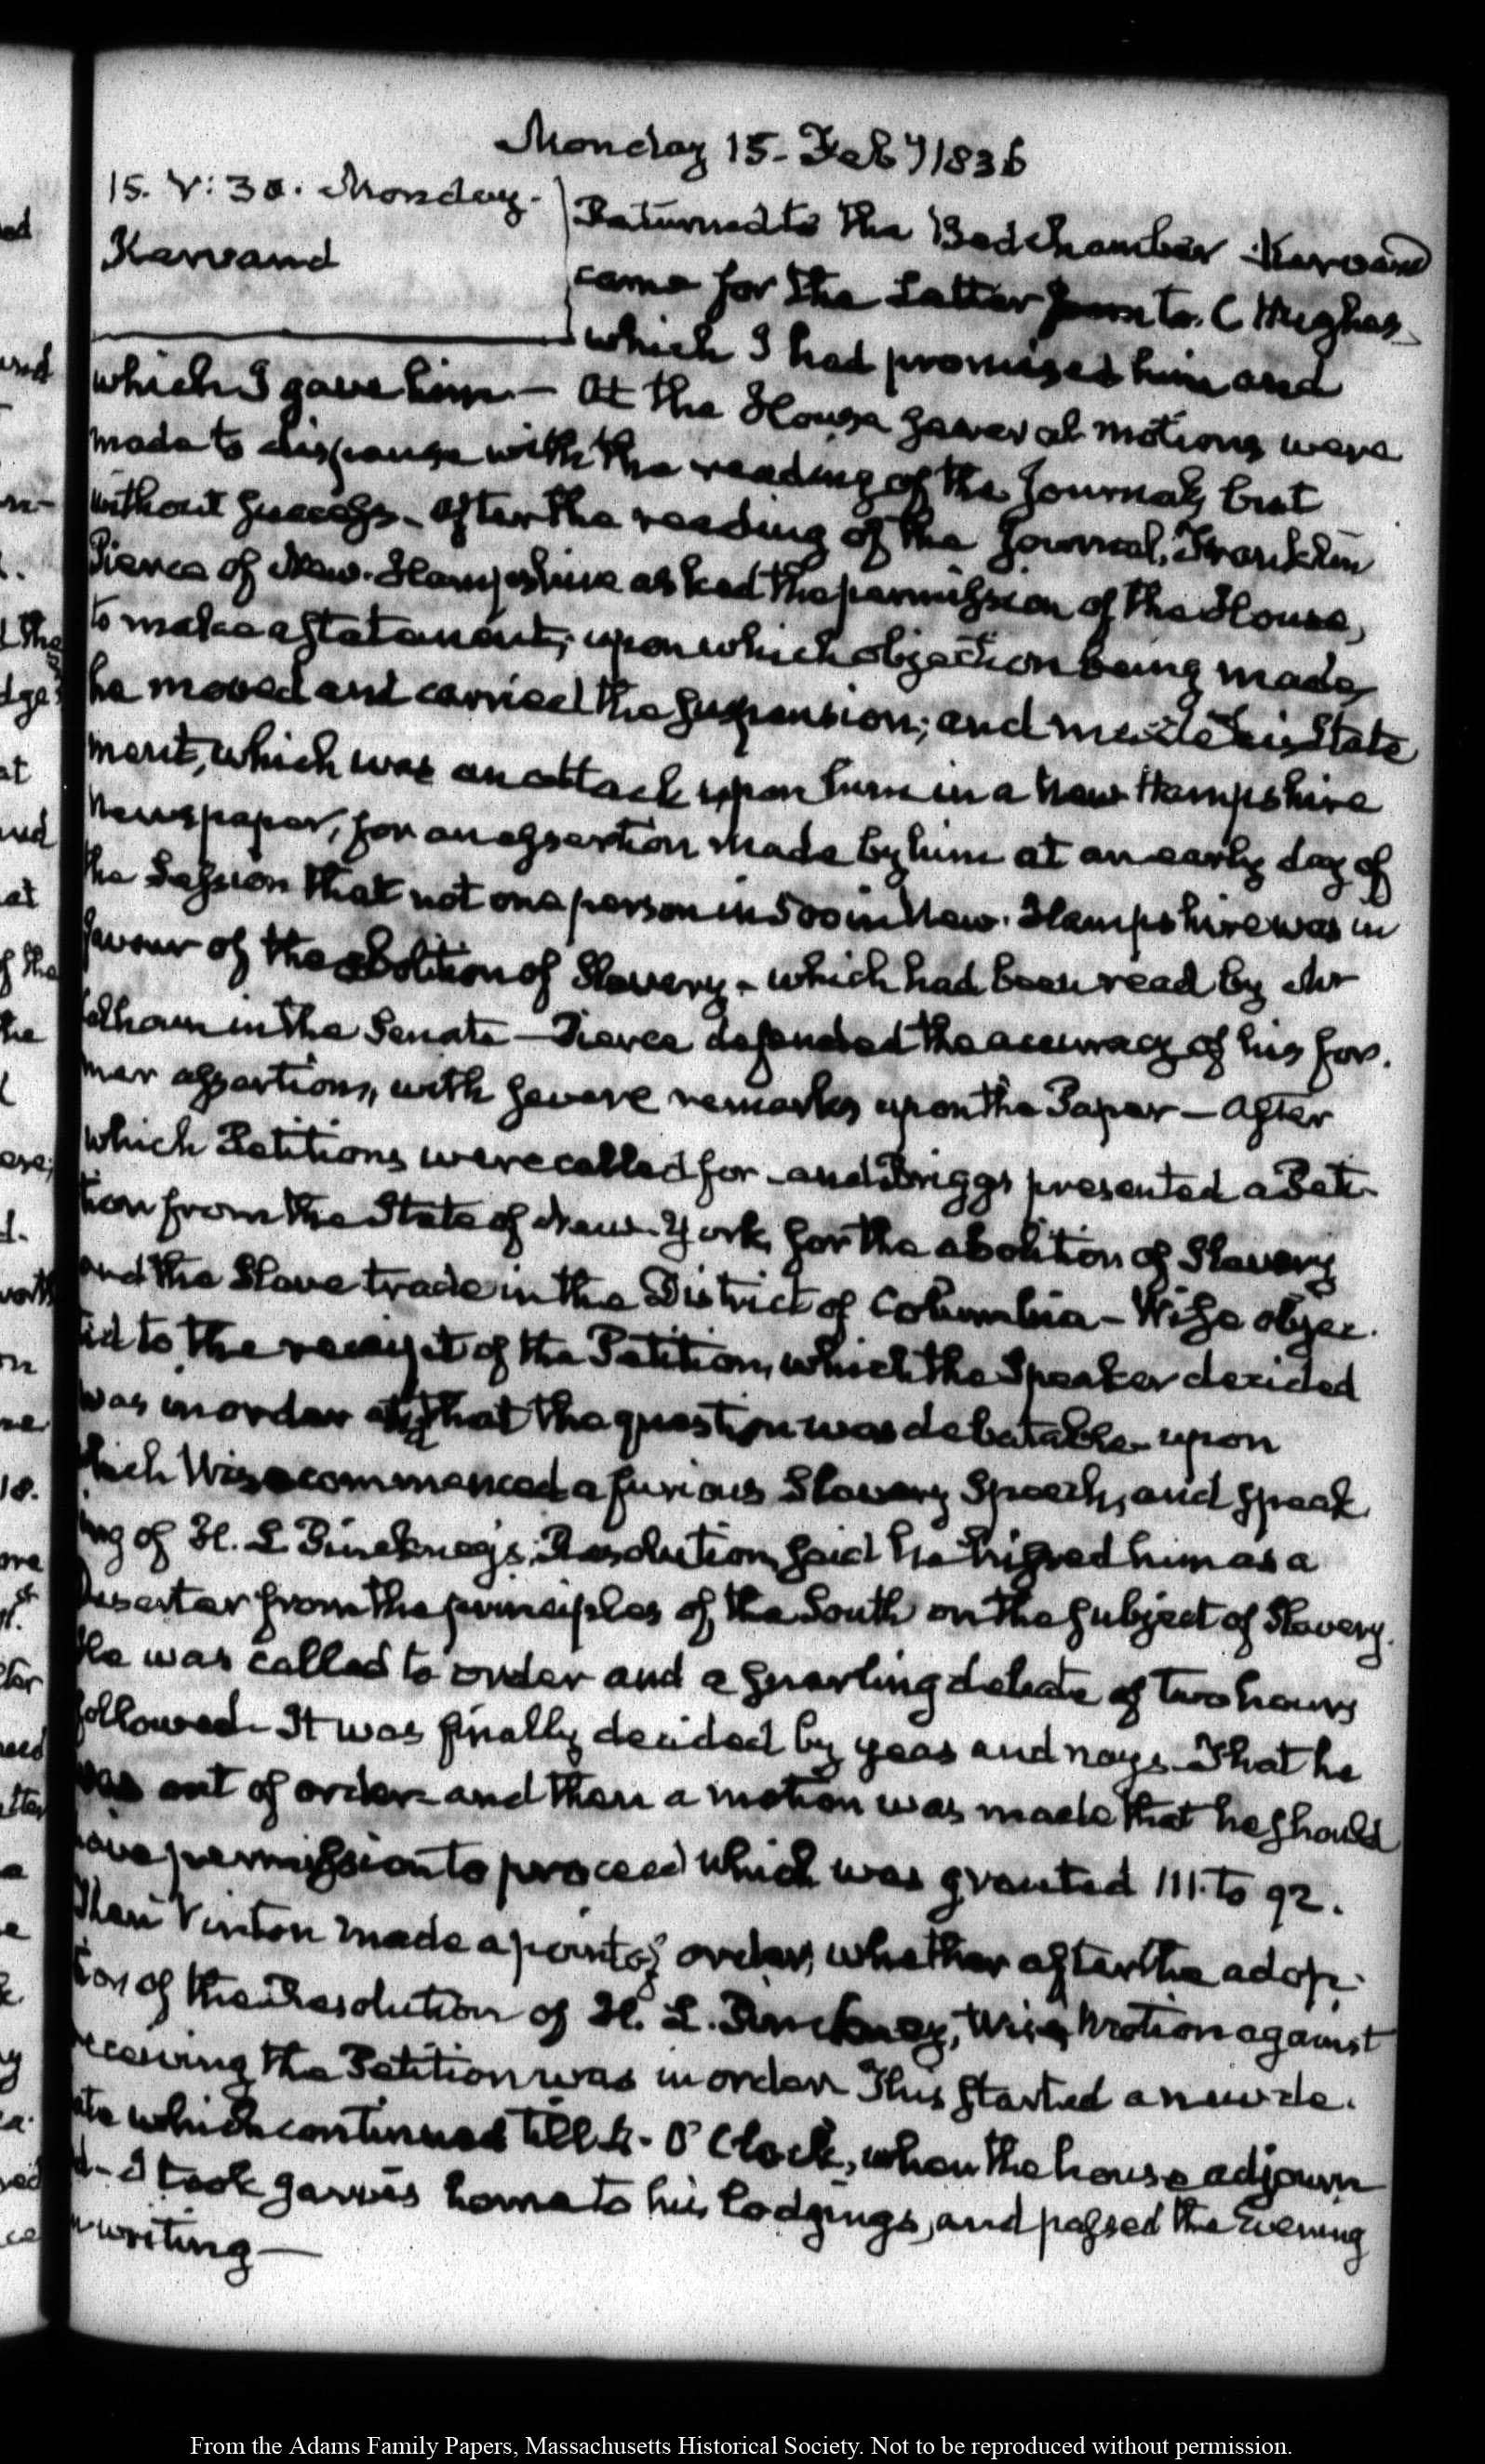 Monday 15. Feby 1836
15. V: 30. Monday.
Karvand
Returned to the Bed chamber Karvand
came for the Letter from to. C Hughes
which I had promised him and
which I gave him. — At the House several motions were
made to dispense with the reading of the Journal, but
without success. After the reading of the Journal, Franklin
Pierce of New-Hampshire asked the permission of the House,
to make a statement; upon which objection being made,
he moved and carried the suspension; and made his State
ment, which was an attack upon him in a New Hampshire
Newspaper, for an assertion made by him at an early day of
the Session that not one person in 500 in New-Hampshire was in
favour of the abolition of Slavery - which had been read by Mr
Calhoun in the Senate — Pierce defended the accuracy of his for.
mer assertions, with severe remarks upon the Paper — After
which Petitions were called for - and Briggs presented a Peti
tion from the State of New-York, for the abolition of Slavery
and the Slave trade in the District of Columbia — Wise objec.
ted to the receipt of the Petition, which the Speaker decided
was in order and that the question was debatable - upon
which Wise commenced a furious Slavery Speech, and speak
ing of H. L Pinckney's Resolution, said he hissed him as a
Deserter from the principles of the South on the subject of Slavery.
He was called to order and a snarling debate of two hours
followed - It was finally decided by yeas and nays - That he
was out of order and then a motion was made that he should
have permission to proceed which was granted 111. to 92.
Then Vinton made a point of order, whether after the adop.
tion of the Resolution of H. L. Pinckney, Wise's Motion against
receiving the Petition was in order. This started a new de.
bate which continued till 4. O'Clock, when the house adjourn
ed - I took Jarvis home to his lodgings, and passed the Evening
in writing —
From the Adams Family Papers, Massachusetts Historical Society. Not to be reproduced without permission.